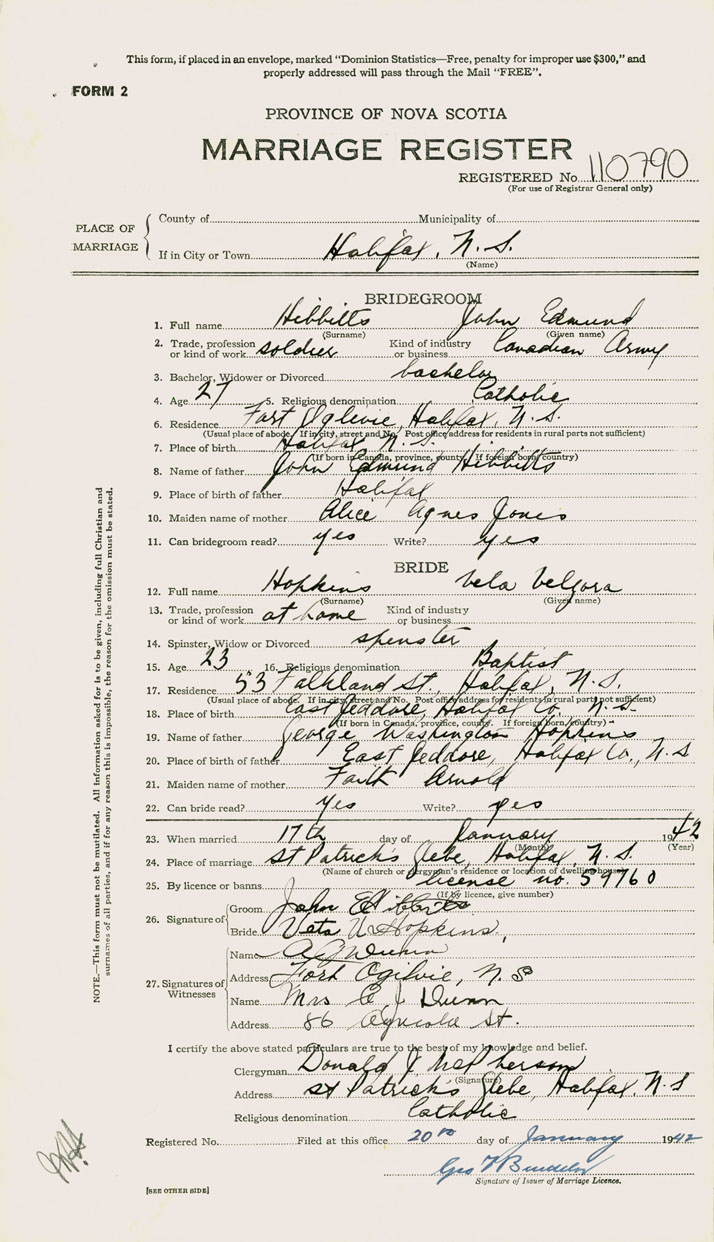 This form, if placed in an envelope, marked "Dominion Statistics—Free, penalty for improper use $300," and
properly addressed will pass through the Mail "FREE".
FORM 2
PROVINCE OF NOVA SCOTIA
MARRIAGE REGISTER
REGISTERED No. 110790
(For use of Registrar General only)
PLACE OF MARRIAGE
County of Municipality of
If in City or Town Halifax, N.S.
(Name)
BRIDEGROOM
1. Full name Hibbitts John Edmund
(Surname) (Given name)
2. Trade, profession or kind of work soldier Kind of industry or business Canadian Army
3. Bachelor, Widower or Divorced bachelor
4. Age 27 5. Religious denomination Catholic
6. Residence Fort Ogilvie, Halifax, N.S.
(Usual place of abode. If in city, street and No. Post office address for residents in rural parts not sufficient)
7. Place of birth Halifax N.S.
(If born in Canada, province, county. If foreign born, country)
8. Name of father John Edmund Hibbitts
9. Place of birth of father Halifax
10. Maiden name of mother Alice Agnes Jones
11. Can bridegroom read? yes Write? yes
BRIDE
12. Full name Hopkins Velzora
(Surname) (Given name)
13. Trade, profession or kind of work at home Kind of industry or business
14. Spinster, Widow or Divorced spinster
15. Age 23 16. Religious denomination Baptist
17. Residence 53 Falkland St., Halifax, N.S.
(Usual place of abode. If in city, street and No. Post office address for residents in rural parts not sufficient)
18. Place of birth East Jeddore, Halifax Co. N.S.
(If born in Canada, province, county. If foreign born, country)
19. Name of father George Washington Hopkins
20. Place of birth of father East Jeddore, Halifax Co., N.S
21. Maiden name of mother Faith Arnold
22. Can bride read? Yes Write? yes
23. When married 17th day of January 1942
(Month) (Year)
24. Place of marriage St Patrick's Glebe, Halifax, N.S.
(Name of church or clergyman's residence or location of dwelling house)
25. By licence or banns license no. 59760
(If by licence, give number)
26. Signature of
Groom John E Hibbitts
Bride Hopkins
27. Signatures of Witnesses
Name
Address Fort Ogilvie, N.S
Name Mrs Dunn
Address 86 Agricola St.
I certify the above stated particulars are true to the best of my knowledge and belief.
Clergyman Donald J McPherson
(Signature)
Address St Patrick's Glebe, Halifax, N.S
Religious denomination Catholic
Registered No. Filed at this office 20th day of January 1942
Geo
Signature of Issuer of Marriage Licence.
[SEE OTHER SIDE]
NOTE.—This form must not be mutilated. All information asked for is to be given, including full Christian and
surnames of all parties, and if for any reason this is impossible, the reason for the omission must be stated.